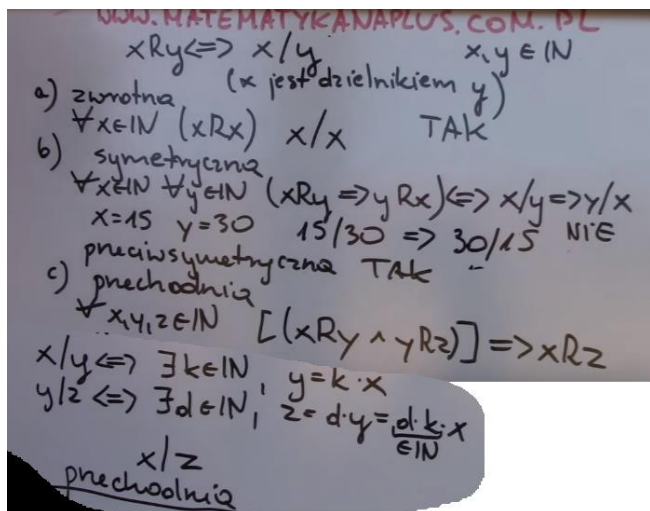 WWW.MATEMATYKANAPLUS.COM.PL
xRy <=> x/y x,y ∈ IN
(x jest dzielnikiem y)
a) zwrotna
∀x∈IN (xRx) x/x TAK
b) symetryczna
∀x∈IN ∀y∈IN (xRy => yRx) <=> x/y => y/x
x=15 y=30 15/30 => 30/15 NIE
przeciwsymetryczna TAK
c) przechodnia
∀x,y,z∈IN [(xRy ∧ yRz)] => xRz
x/y <=> ∃k∈IN; y=k·x
y/z <=> ∃d∈IN; z=d·y=d·k·x
∈IN
x/z
przechodnia